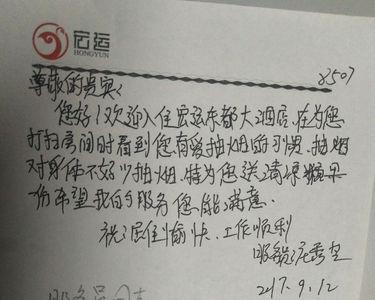 宏运
HONGYUN
8507
尊敬的贵宾:
您好!欢迎入住宏运东都大酒店,在为您
打扫房间时看到您有爱抽烟的习惯,抽烟
对身体不好少抽烟.特为您送清绿糖果
一份希望我的服务您能满意.
祝:居住愉快.工作顺利
服务员
217.9.12